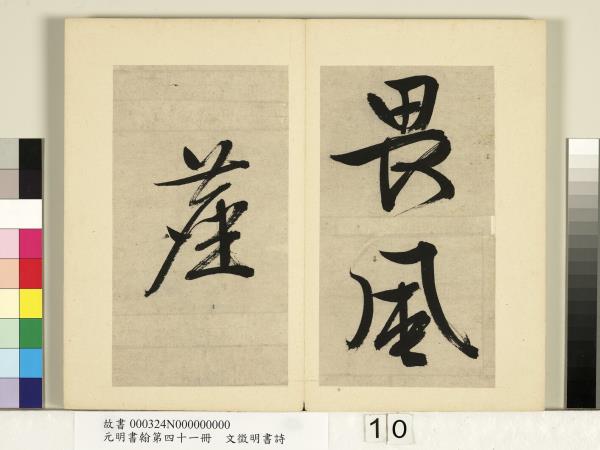 畏風
塵
故書 000324N000000000
元明書翰第四十一冊 文徵明書詩
10